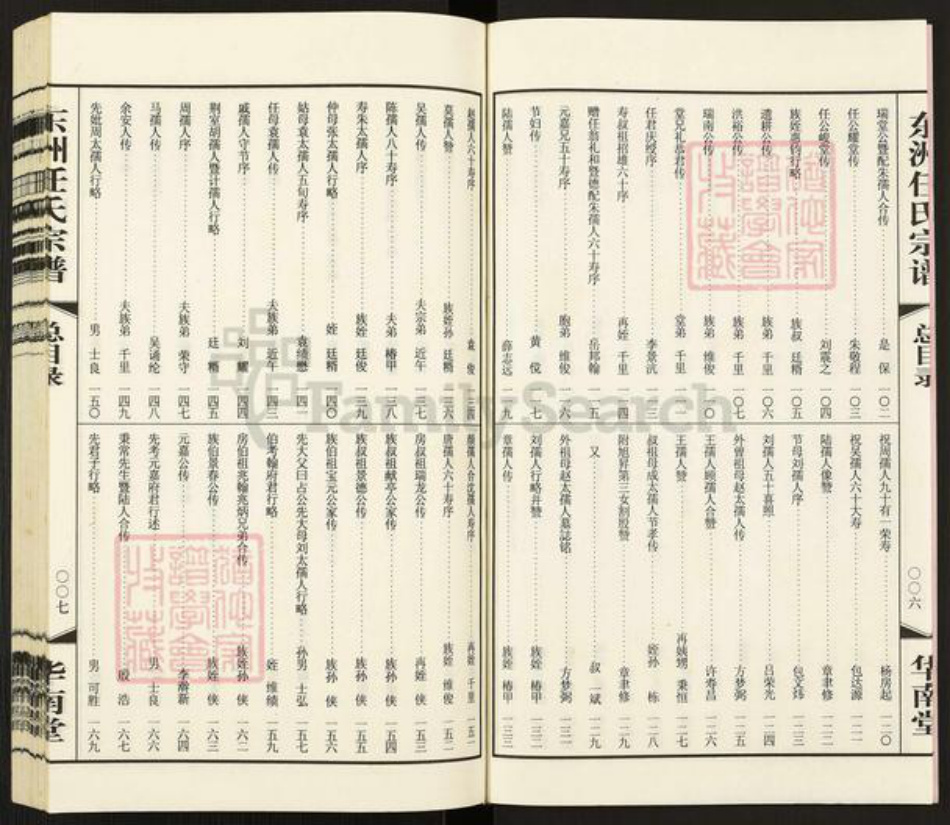 东洲任氏宗谱
总目录
〇〇六
华南堂
瑞堂公暨配朱孺人合传 是保 一〇二
任公耀堂传 朱敬程 一〇三
任公峻堂传 刘震之 一〇四
族侄惠钧行略 族叔 廷楷 一〇五
遗耕公传 族弟 千里 一〇六
洪裕公传 族弟 千里 一〇七
瑞南公传 族弟 维俊 一一〇
堂兄礼恭君传 堂弟 千里 一一二
任君庆绶序 李景沆 一一三
寿叔祖招雄六十序 再侄 千里 一一四
赠任翁礼和暨德配朱孺人六十寿序 岳邦翰 一一五
元嘉兄五十寿序 胞弟 维俊 一一六
节妇传 黄傥 一一七
陆孺人赞 薛志远 一一九
祝周孺人九十有一荣寿 杨房起 一二〇
祝吴孺人六十大寿 包达源 一二一
陆孺人像赞 章聿修 一二二
节母刘孺人序 包文炜 一二三
刘孺人五十喜照 吕荣光 一二四
外曾祖母赵太孺人传 方梦弼 一二五
王孺人顾孺人合赞 许希昌 一二六
王孺人赞 再姨甥 秉恒 一二七
叔祖母成太孺人节孝传 侄孙 栋 一二八
附旭昇第三女割股赞 章聿修 一二九
又 叔 一斌 一二九
外祖母赵太孺人墓誌铭 方梦弼 一三一
刘孺人行略并赞 族侄 椿甲 一三二
章孺人传 族侄 椿甲 一三三
赵孺人六十寿序 袁俊 一三四
莫孺人赞 族侄孙 廷楷 一三六
吴孺人传 夫宗弟 近午 一三七
陈孺人八十寿序 夫弟 椿甲 一三八
寿朱太孺人序 族侄 廷俊 一三九
仲母张太孺人行略 侄 廷楷 一四〇
姑母袁太孺人五旬寿序 袁绩懋 一四一
任母袁孺人传 夫族弟 近午 一四三
戚孺人守节序 刘耀 一四四
荆室胡孺人暨计孺人行略 廷楷 一四五
周孺人序 夫族弟 荣守 一四七
马孺人传 吴诵纶 一四八
余安人传 夫族弟 千里 一四九
先妣周太孺人行略 男 士良 一五〇
颜孺人合沈孺人寿序 再侄 千里 一五一
唐孺人六十寿序 族侄 维俊 一五二
房叔祖瑞龙公传 再侄 侠 一五三
族叔祖献亭公家传 族孙 侠 一五四
族叔祖景德公传 族孙 侠 一五五
族伯祖宝元公家传 族孙 侠 一五六
先大父曰占公先大母刘太孺人行略 孙男 士弘 一五七
伯考翰府君行略 侄 维绩 一五九
房伯祖兆翰兆炳兄弟合传 族侄孙 侠 一六二
族伯景春公传 族侄 侠 一六三
元嘉公传 李瀚新 一六四
先考元嘉府君行述 男 士良 一六六
秉常先生暨陆人合传 殷浩 一六七
先君子行略 男 可胜 一六九
东洲任氏宗谱
总目录
〇〇七
华南堂
FamilySearch